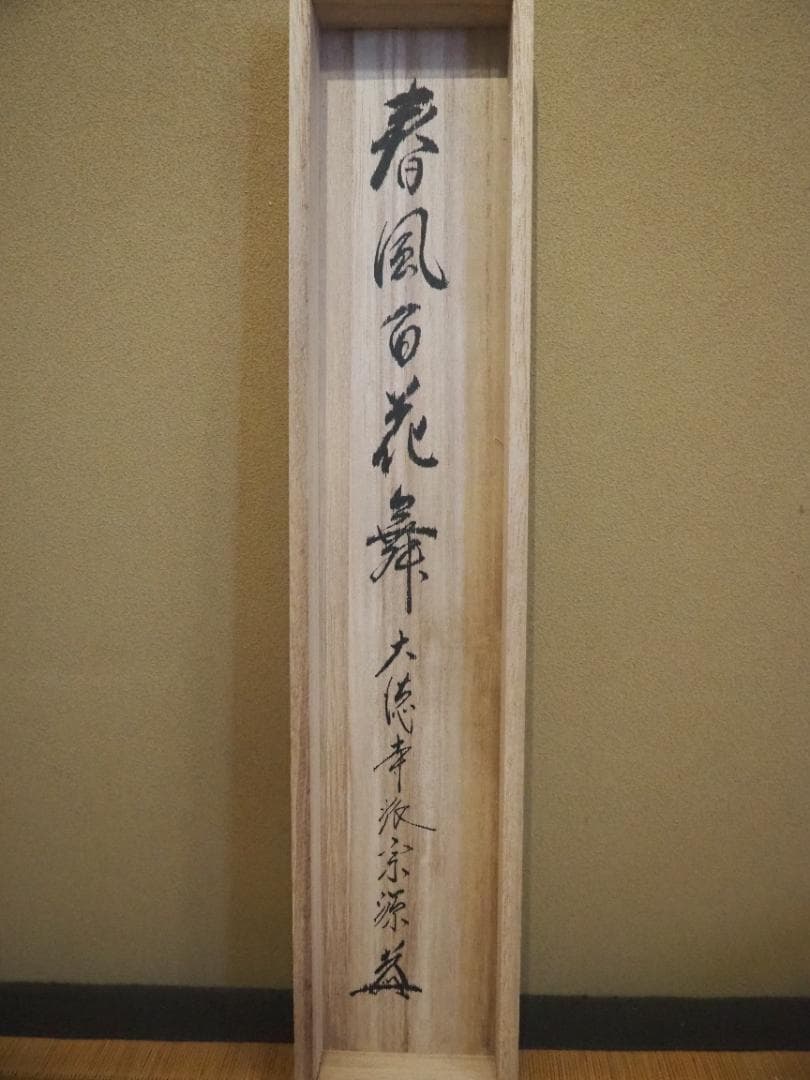 春風百花舞 大徳寺派宗源